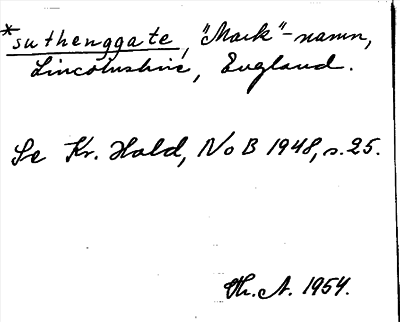 *suthenggate, "Mark"-namn,
Lincolnshire, England.
Se Kr. Hald, NoB 1948, s. 25.
Th. A. 1954.